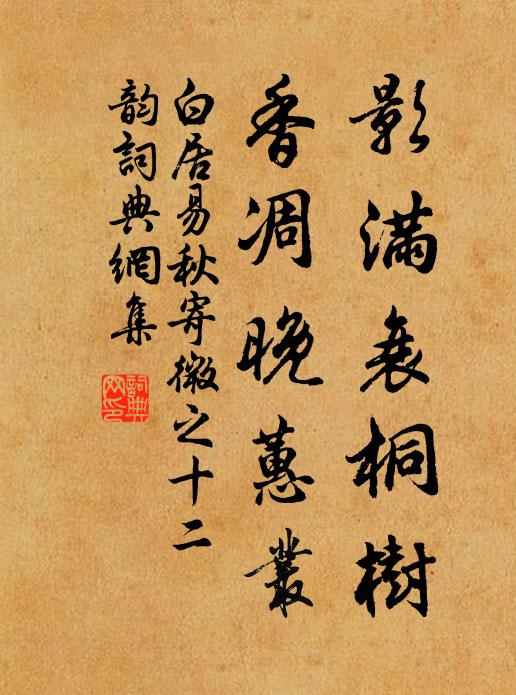 影滿衰桐樹
香凋晚蕙叢
白居易秋寄微之十二
韵詞典網集
詞典
网印